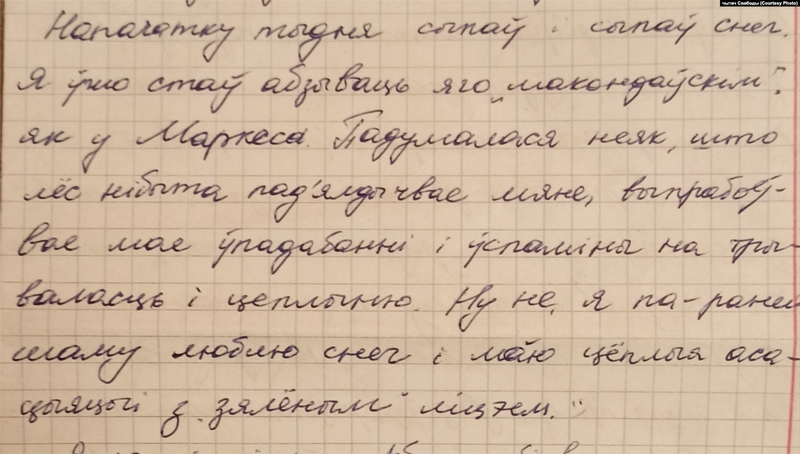 чытач Свабоды (Courtesy Photo)
Напачатку тыдня сыпаў і сыпаў снег.
Я ўжо стаў абзываць яго „макондаўскім",
як у Маркеса. Падумалася неяк, што
лёс нібыта пад'ялдычвае мяне, выпрабоў-
вае мае ўпадабанні і ўспаміны на тры-
валасць і цеплыню. Ну не, я па-раней
шаму люблю снег і маю цёплыя аса-
цыяцыі з „зялёным" ліцэем."